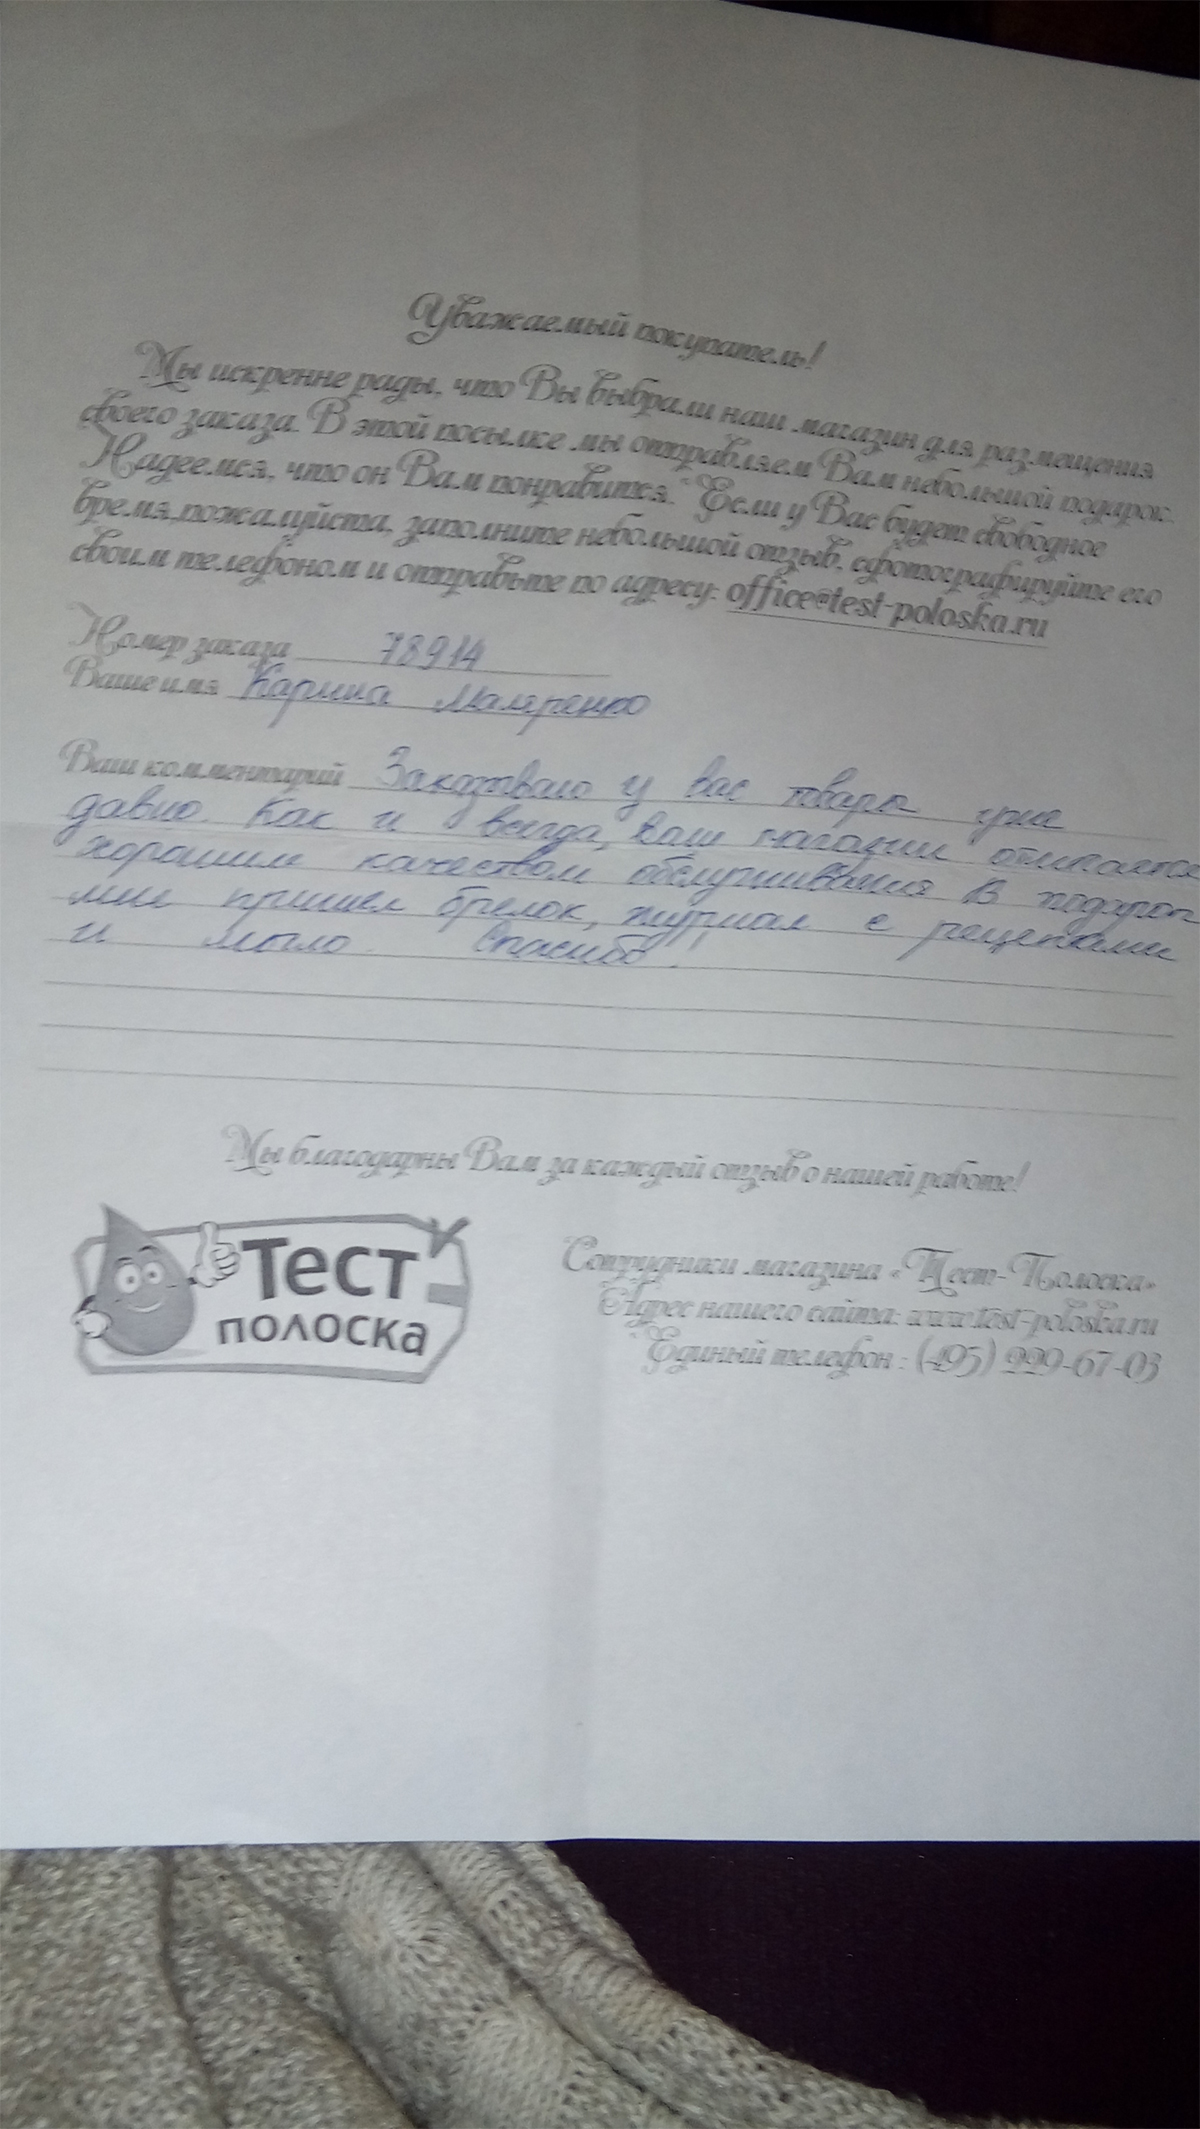 Уважаемый покупатель!
Мы искренне рады, что Вы выбрали наш магазин для размещения
своего заказа. В этой посылке мы отправляем Вам небольшой подарок.
Надеемся, что он Вам понравится. Если у Вас будет свободное
время,пожалуйста, заполните небольшой отзыв, сфотографируйте его
своим телефоном и отправьте по адресу: office@test-poloska.ru
Номер заказа 78914
Ваше имя Карина Маляренко
Ваш комментарий Заказываю у вас товары уже
давно. Как и всегда, ваш магазин отличался
хорошим качеством обслуживания В подарок
мне пришел брелок, журнал с рецептами
и мыло. Спасибо!
Мы благодарны Вам за каждый отзыв о нашей работе!
Тест
полоска
Сотрудники магазина «Тест-Полоска»
Адрес нашего сайта: www.test-poloska.ru
Единый телефон : (495) 999-67-03